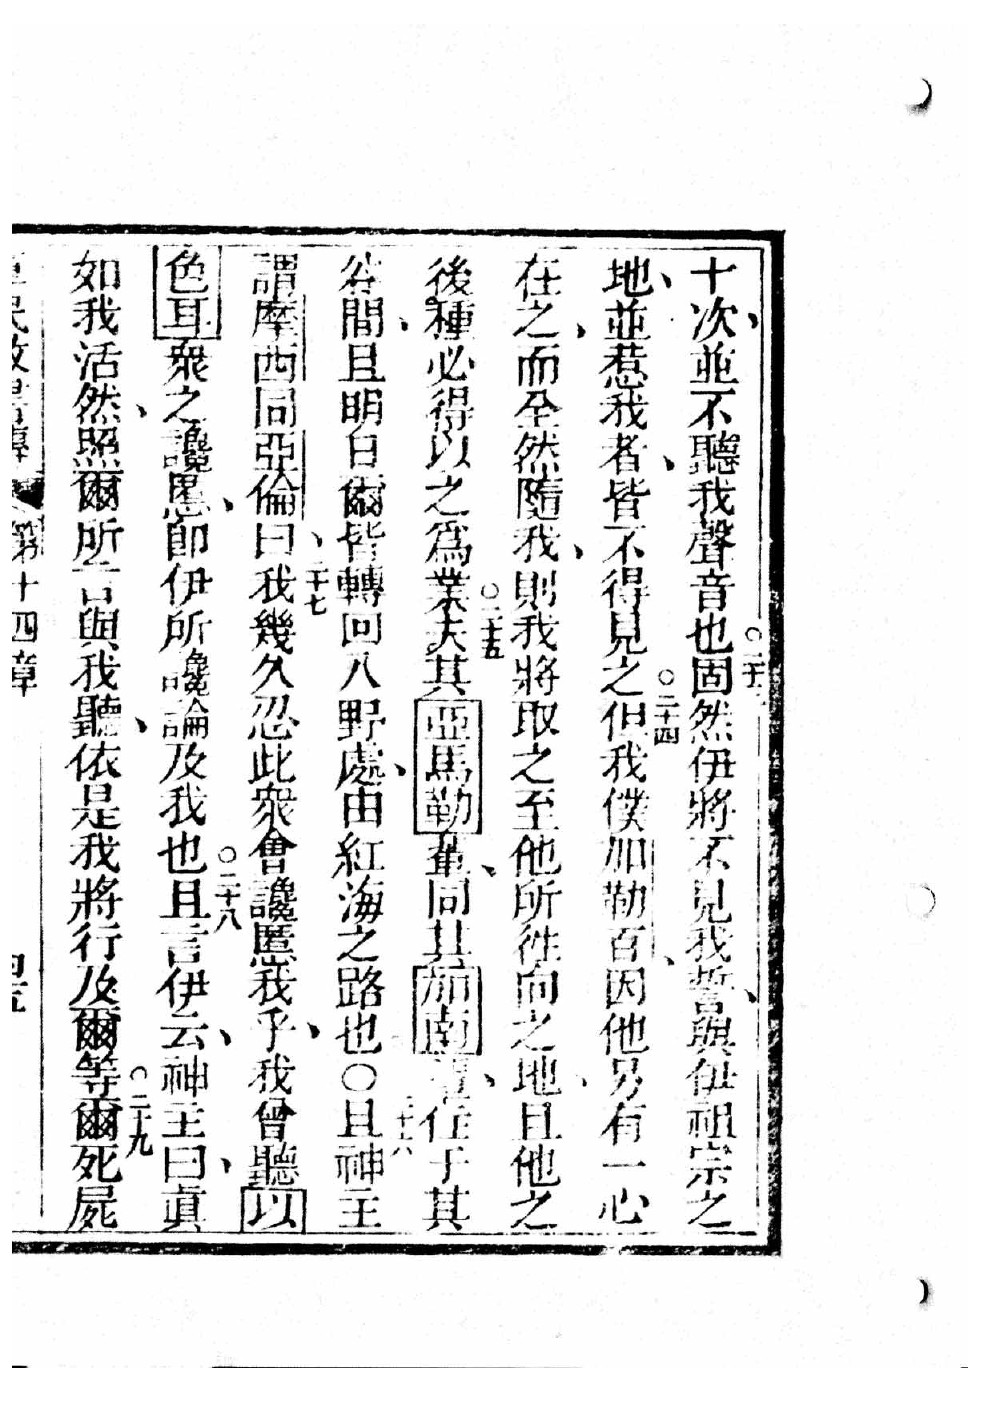 十次、並不聽我聲音也○二十固然伊將不見我誓、與伊祖宗之
地、並惹我者、皆不得見之○二十四但我僕加勒百、因他另有一心
在之、而全然隨我、則我將取之至他所徃向之地、且他之
後種必得以之爲業○二十五夫其亞馬勒輩、同其加南輩、住于其
谷間、且明日爾皆轉回入野處、由紅海之路也○二十六○且神主
謂摩西同亞倫曰、二十七我幾久忍此衆會讒慝我乎、我曾聽以
色耳衆之讒慝、卽伊所讒論及我也○二十八且言伊云、神主曰、眞
如我活然、照爾所言與我聽、依是我將行及爾等○二十九爾死屍
第十四章